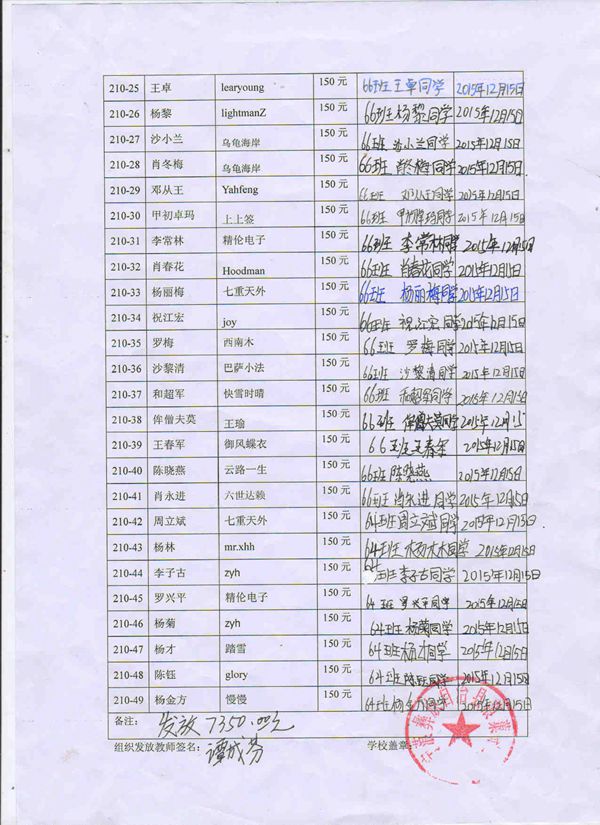 210-25 王卓 learyoung 150 元 66班王卓同学 2015年12月15日
210-26 杨黎 lightmanZ 150 元 66班杨黎同学 2015年12月15日
210-27 沙小兰 乌龟海岸 150 元 66班 沙小兰同学 2015年12月15日
210-28 肖冬梅 乌龟海岸 150 元 66班 肖冬梅同学 2015年12月15日
210-29 邓从王 Yahfeng 150 元 66班 邓从王同学 2015年12月15日
210-30 甲初卓玛 上上签 150 元 66班 甲初卓玛同学 2015年12月15日
210-31 李常林 精伦电子 150 元 66班 李常林同学 2015年12月15日
210-32 肖春花 Hoodman 150 元 66班 肖春花同学 2015年12月15日
210-33 杨丽梅 七重天外 150 元 66班 杨丽梅同学 2015年12月15日
210-34 祝江宏 joy 150 元 66班 祝江宏同学 2015年12月15日
210-35 罗梅 西南木 150 元 66班 罗梅同学 2015年12月15日
210-36 沙黎清 巴萨小法 150 元 66班 沙黎清同学 2015年12月15日
210-37 和超军 快雪时晴 150 元 66班 和超军同学 2015年12月15日
210-38 侔僧夫英 王瑜 150 元 66班 2015年12月15
210-39 王春军 御风蝶衣 150 元 66班王春军 2015年12月15日
210-40 陈晓燕 云路一生 150 元 66班陈晓燕 2015年12月15日
210-41 肖永进 六世达赖 150 元 66班 肖永进同学 2015年12月15日
210-42 周立斌 七重天外 150 元 64班周立斌同学 2015年12月15日
210-43 杨林 mr.xhh 150 元 64班 杨林同学 2015年12月15日
210-44 李子古 zyh 150 元 64班李子古同学 2015年12月15日
210-45 罗兴平 精伦电子 150 元 64班 罗兴平同学 2015年12月15日
210-46 杨菊 zyh 150 元 64班 杨菊同学 2015年12月15日
210-47 杨才 踏雪 150 元 64班杨才同学 2015年12月15日
210-48 陈钰 glory 150 元 64班 陈钰同学 2015年12月15日
210-49 杨金方 慢慢 150 元 64班杨金方同学 2015年12月15日
备注： 发放7350.00元
组织发放教师签名： 谭成芬 学校盖章：